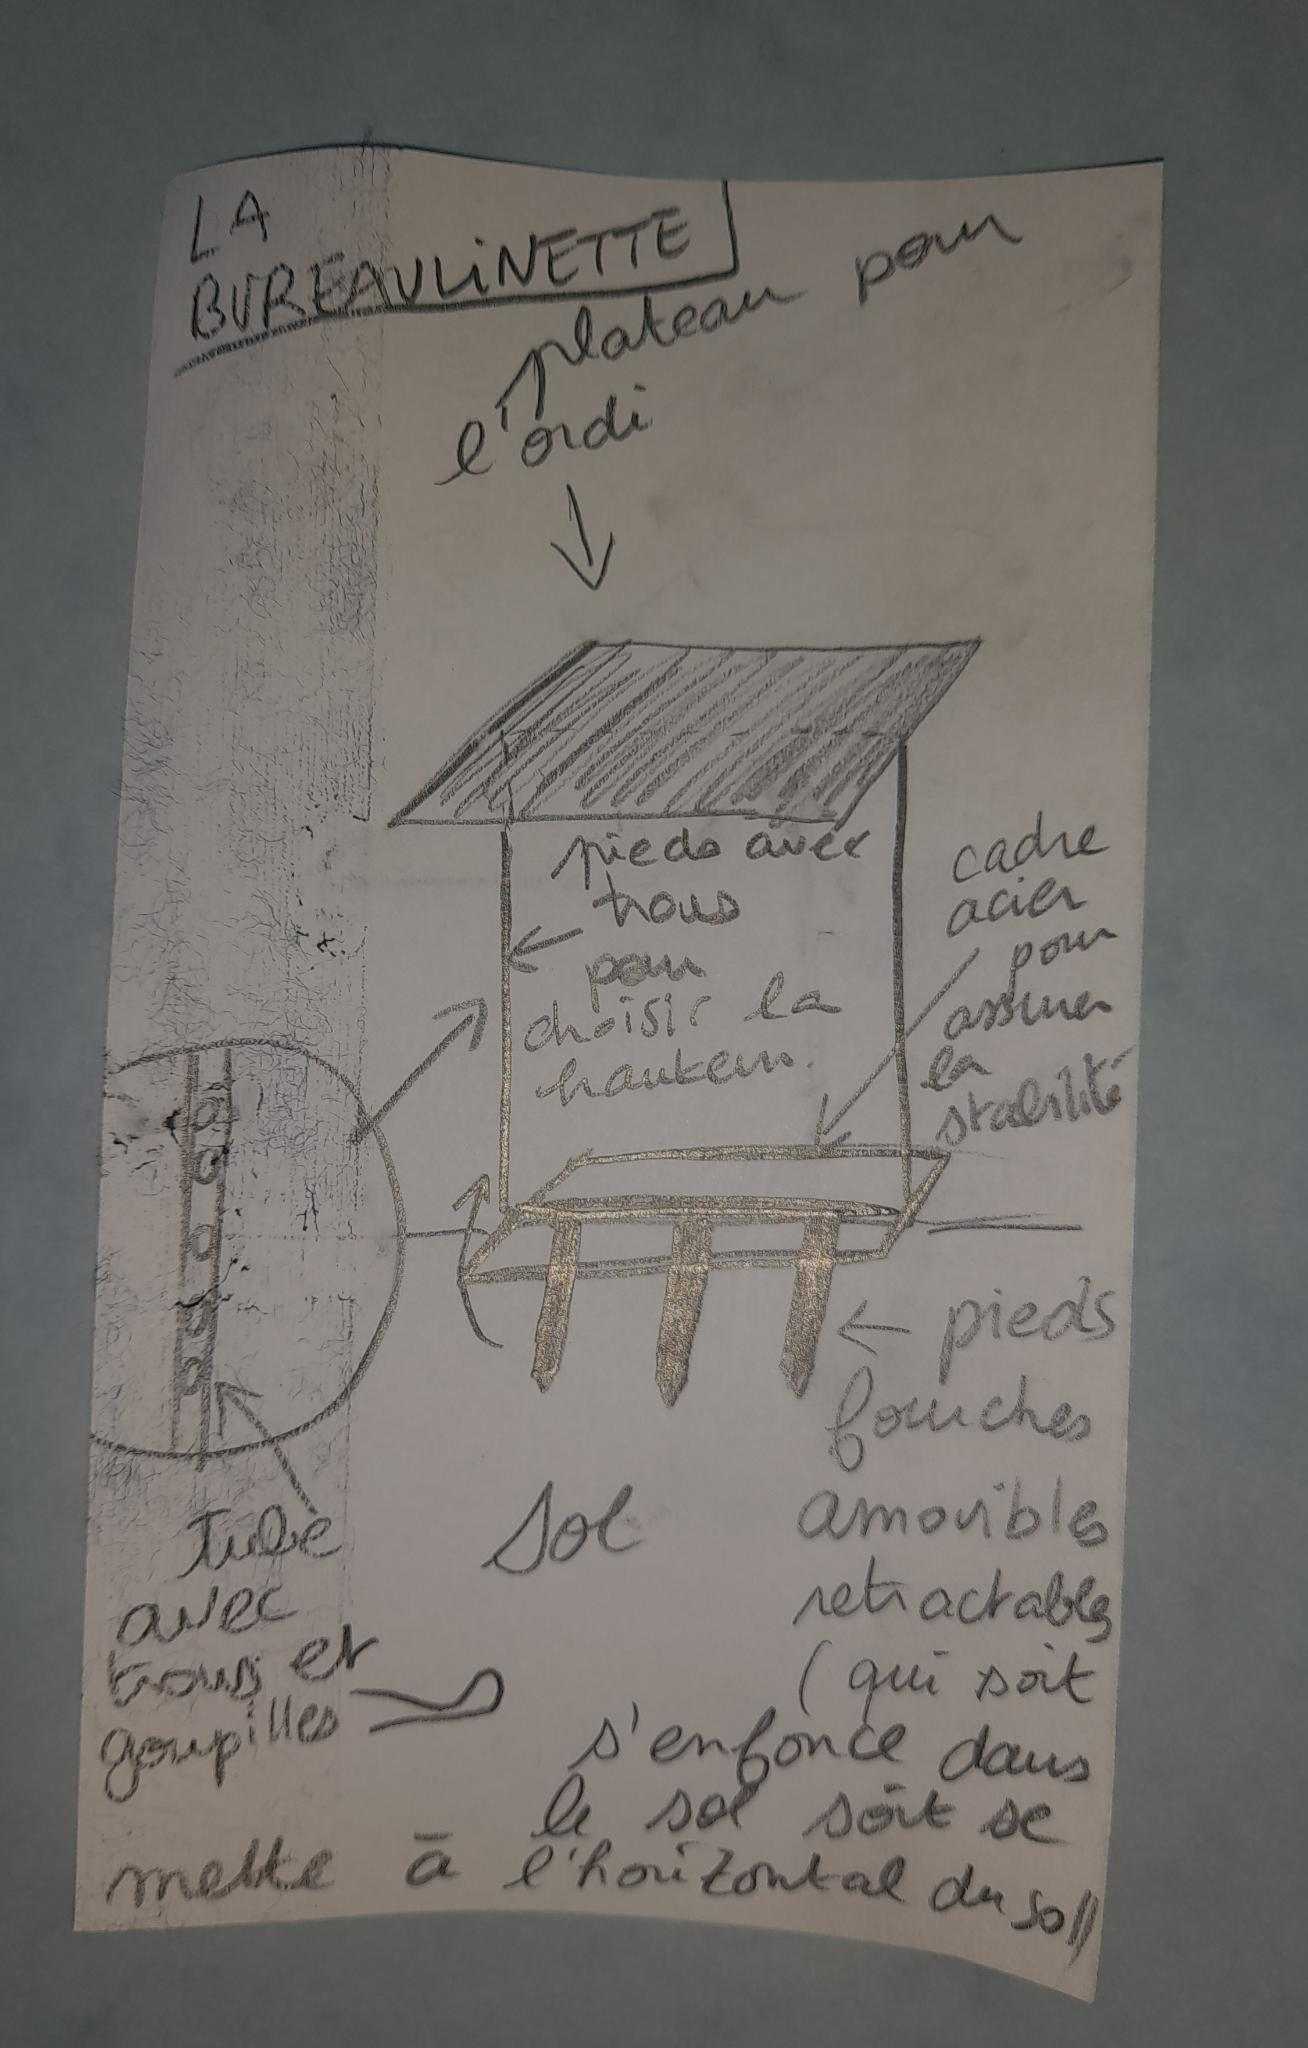 LA
BUREAULINETTE
plateau pour
l'ordi
pieds avec
trous
pour
choisir la
hauteur.
cadre
acier
pour
assurer
la
stabilité
pieds
fourches
amovibles
retractables
(qui soit
s'enfonce dans
le sol soit se
mette à l'horizontal du sol)
Sol
Tube
avec
trous et
goupilles